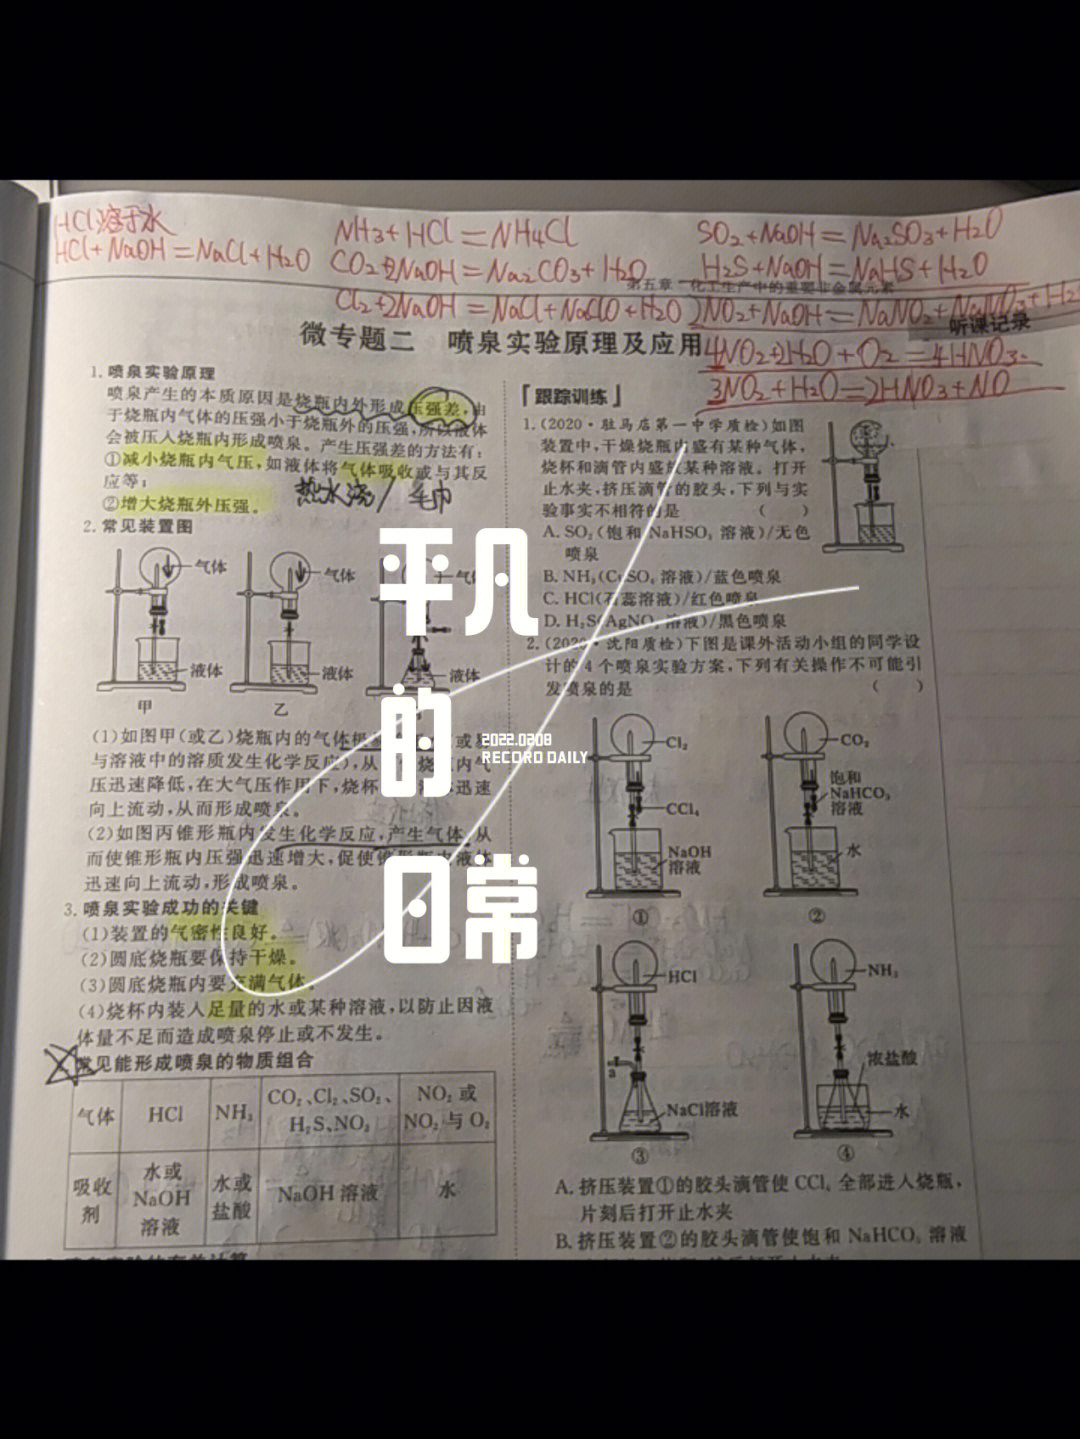 HCl溶于水
HCl+NaOH=NaCl+H2O
NH3+HCl=NH4Cl
CO2+2NaOH=Na2CO3+H2O
Cl2+2NaOH=NaCl+NaClO+H2O
SO2+NaOH=Na2SO3+H2O
H2S+NaOH=NaHS+H2O
第五章 化工生产中的重要非金属元素
2NO2+NaOH=NaNO2+NaNO3+H2
听课记录
4NO2+2H2O+O2=4HNO3
3NO2+H2O=2HNO3+NO
微专题二 喷泉实验原理及应用
1.喷泉实验原理
喷泉产生的本质原因是烧瓶内外形成压强差,由
于烧瓶内气体的压强小于烧瓶外的压强,所以液体
会被压入烧瓶内形成喷泉。产生压强差的方法有:
①减小烧瓶内气压,如液体将气体吸收或与其反
应等;
热水浇/毛巾
②增大烧瓶外压强。
2.常见装置图
气体
液体
甲
气体
液体
乙
气
液体
(1)如图甲(或乙)烧瓶内的气体 或
与溶液中的溶质发生化学反应),从 烧 内气
压迅速降低,在大气压作用下,烧杯 迅速
向上流动,从而形成喷泉。
(2)如图丙锥形瓶内发生化学反应,产生气体,从
而使锥形瓶内压强迅速增大,促使 液体
迅速向上流动,形成喷泉。
3.喷泉实验成功的关键
(1)装置的气密性良好。
(2)圆底烧瓶要保持干燥。
(3)圆底烧瓶内要充满气体。
(4)烧杯内装入足量的水或某种溶液,以防止因液
体量不足而造成喷泉停止或不发生。
常见能形成喷泉的物质组合
气体 HCl NH3 CO2、Cl2、SO2、H2S、NO2 NO2或NO2与O2
吸收剂 水或NaOH溶液 水或盐酸 NaOH溶液 水
平凡
的
日常
2022.0208
RECORD DAILY
「跟踪训练」
1.(2020·驻马店第一中学质检)如图
装置中,干燥烧瓶内盛有某种气体,
烧杯和滴管内盛放某种溶液。打开
止水夹,挤压滴管的胶头,下列与实
验事实不相符的是 ( )
A.SO2(饱和NaHSO3溶液)/无色
喷泉
B.NH3(CuSO4溶液)/蓝色喷泉
C.HCl(石蕊溶液)/红色喷泉
D.H2S(AgNO3溶液)/黑色喷泉
2.(2020·沈阳质检)下图是课外活动小组的同学设
计的4个喷泉实验方案,下列有关操作不可能引
发喷泉的是 ( )
Cl2
CCl4
NaOH
溶液
①
CO2
饱和
NaHCO3
溶液
水
②
HCl
a
NaCl溶液
③
NH3
浓盐酸
水
④
A.挤压装置①的胶头滴管使CCl4全部进入烧瓶,
片刻后打开止水夹
B.挤压装置②的胶头滴管使饱和NaHCO3溶液